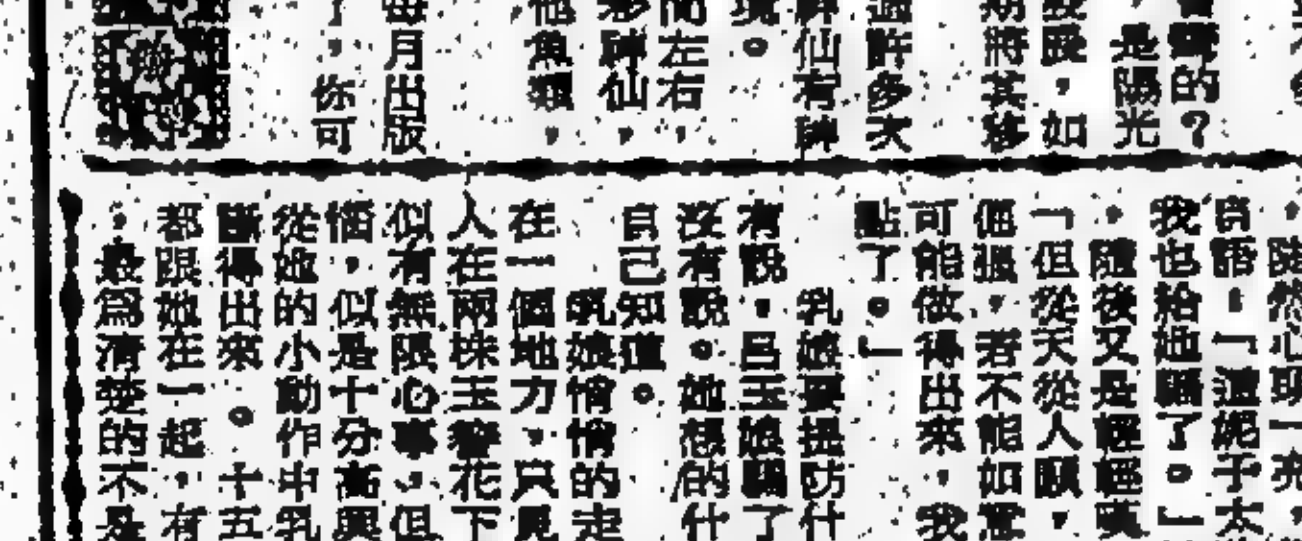 嗎的？
是陽光
，如
期將其移
過許多次
仙有
境。
間左右，
仙，
他魚類，
每月出版
，你可
陡然心頭一亮，
自語：「這妮子太
我也給她騙了。」
，隨後又是輕輕嘆
「但從天從人願，
個張，若不能如
可能做得出來，我
點了。」
乳娘要提防什
有說，呂玉娘騙了
沒有說。她想的什
自己知道。
乳娘悄悄的走
在一個地方，只見
人在兩株玉簪花下
似有無限心事，但
惱，似是十分高興
從她的小動作中乳
斷得出來。十五
都跟她在一起，有
，最為清楚的不是